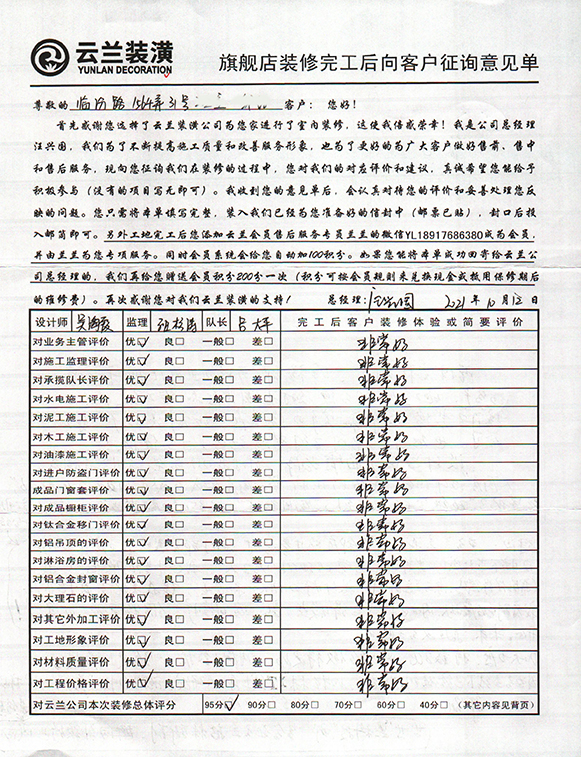 云兰装潢
YUNLAN DECORATION
旗舰店装修完工后向客户征询意见单
尊敬的 临汾路1564弄31号 客户：您好！
首先感谢您选择了云兰装潢公司为您家进行了室内装修，这使我倍感荣幸！我是公司总经理
汪兴国，我们为了不断提高施工质量和改善服务形象，也为了更好的为广大客户做好售前、售中
和售后服务，现向您征询我们在装修的过程中，您对我们的对应评价和建议，真诚希望您能给予
积极参与（没有的项目写无即可）。我收到您的意见单后，会认真对待您的评价和妥善处理您反
映的问题。您只需将本单填写完整，装入我们已经为您准备好的信封中（邮票已贴），封口后投
入邮筒即可。另外工地完工后您添加云兰会员售后服务专员兰兰的微信YL18917686380成为会员，
并由兰兰为您专项服务。同时会员系统会给您自动加100积分。如果您能将本单成功回寄给云兰公
司总经理的，我们再给您赠送会员积分200分一次（积分可按会员规则来兑换现金或抵用保修期后
的维修费）。再次感谢您对我们云兰装潢的支持！ 总经理： 2021年10月12日
设计师 监理 队长 吕大平 完工后客户装修体验或简要评价
对业务主管评价 优☑ 良□ 一般□ 差□ 非常好
对施工监理评价 优☑ 良□ 一般□ 差□ 非常好
对承揽队长评价 优☑ 良□ 一般□ 差□ 非常好
对水电施工评价 优☑ 良□ 一般□ 差□ 非常好
对泥工施工评价 优☑ 良□ 一般□ 差□ 非常好
对木工施工评价 优☑ 良□ 一般□ 差□ 非常好
对油漆施工评价 优☑ 良□ 一般□ 差□ 非常好
对进户防盗门评价 优☑ 良□ 一般□ 差□ 非常好
成品门窗套评价 优☑ 良□ 一般□ 差□ 非常好
对成品橱柜评价 优☑ 良□ 一般□ 差□ 非常好
对钛合金移门评价 优☑ 良□ 一般□ 差□ 非常好
对铝吊顶的评价 优☑ 良□ 一般□ 差□ 非常好
对淋浴房的评价 优☑ 良□ 一般□ 差□ 非常好
对铝合金封窗评价 优☑ 良□ 一般□ 差□ 非常好
对大理石的评价 优☑ 良□ 一般□ 差□ 非常好
对其它外加工评价 优☑ 良□ 一般□ 差□ 非常好
对工地形象评价 优☑ 良□ 一般□ 差□ 非常好
对材料质量评价 优☑ 良□ 一般□ 差□ 非常好
对工程价格评价 优☑ 良□ 一般□ 差□ 非常好
对云兰公司本次装修总体评分 95分☑ 90分□ 80分□ 70分□ 60分□ 40分□ （其它内容见背页）